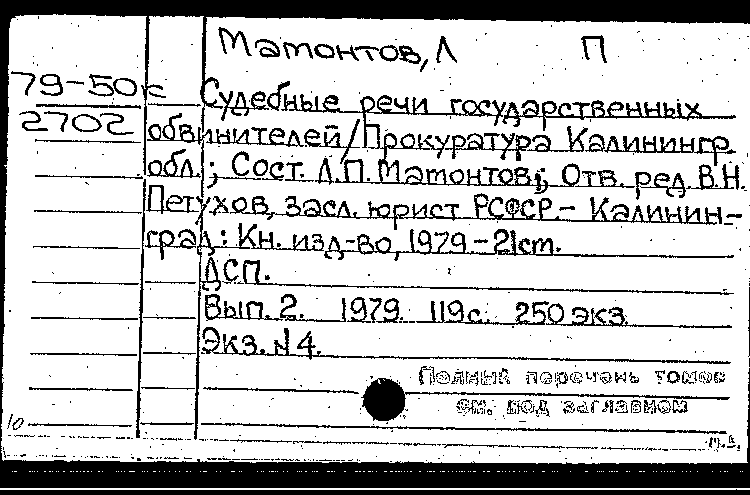 Матонтов, Л П
79-50к
2702
Судебные речи государственных
обвинителей/Прокуратура Калинингр.
обл.; Сост. Л.П. Матонтов; Отв. ред. В.Н.
Петухов, засл. юрист РСФСР.- Калинин-
град: Кн. изд-во, 1979.-21см.
ДСП.
Вып. 2. 1979. 119с. 250 экз.
Экз. №4.
Полный перечень томов
см. под заглавием
10